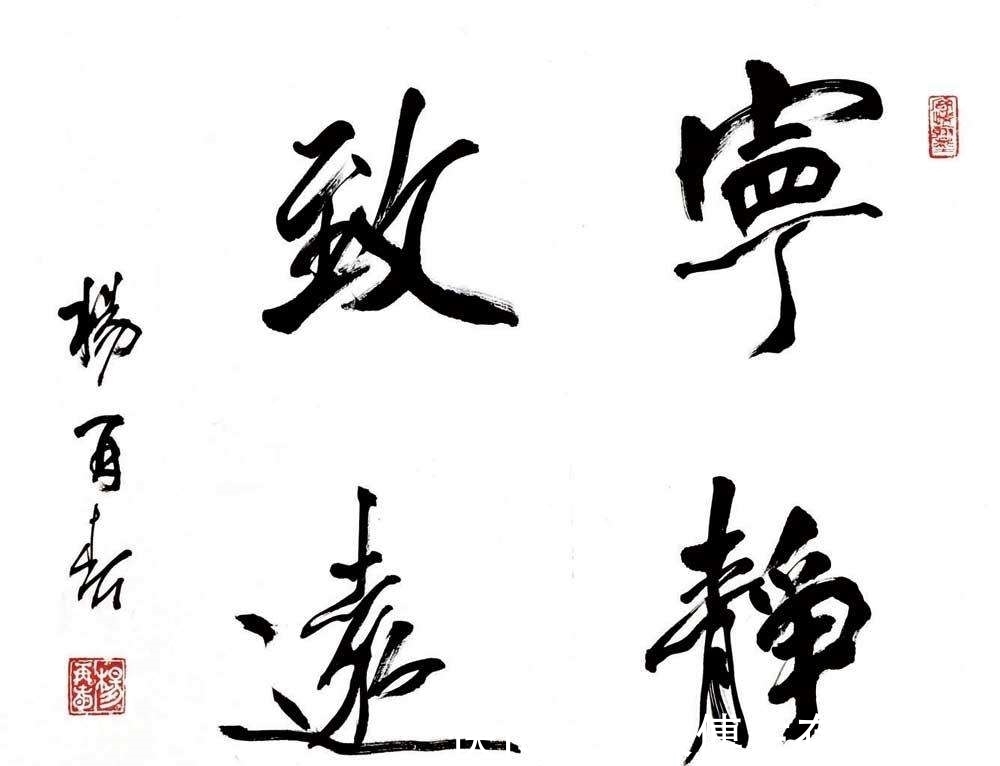 寧靜
致遠
楊再春